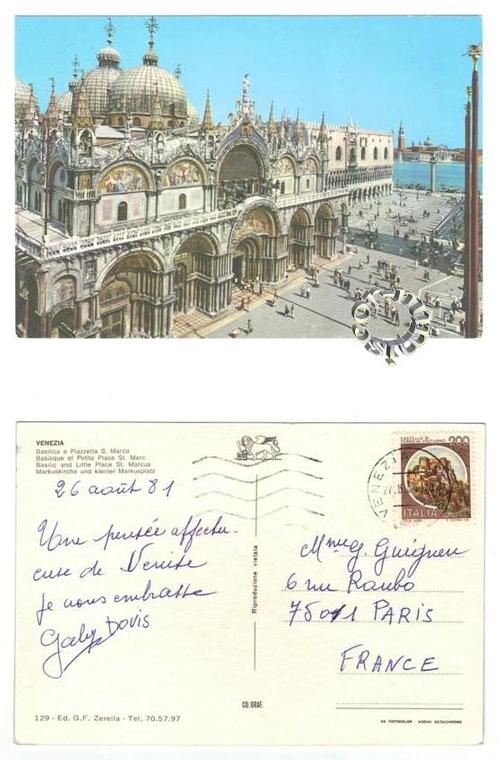 VENEZIA
Basilica e Piazzetta S. Marco
Basilique et Petite Place St. Marc
Basilic and Little Place St. Marcus
Markuskirche und kleiner Markusplatz
26 août 81
Une pensée affectu-
euse de Venise
Je vous embrasse
Gaby Dovis
129 - Ed. G.F. Zerella - Tel. 70.57.97
Riproduzione vietata
CO. GRAF.
VENEZIA
200
ITALIA
Mme G. Guigneu
6 rue Raubo
75011 PARIS
FRANCE